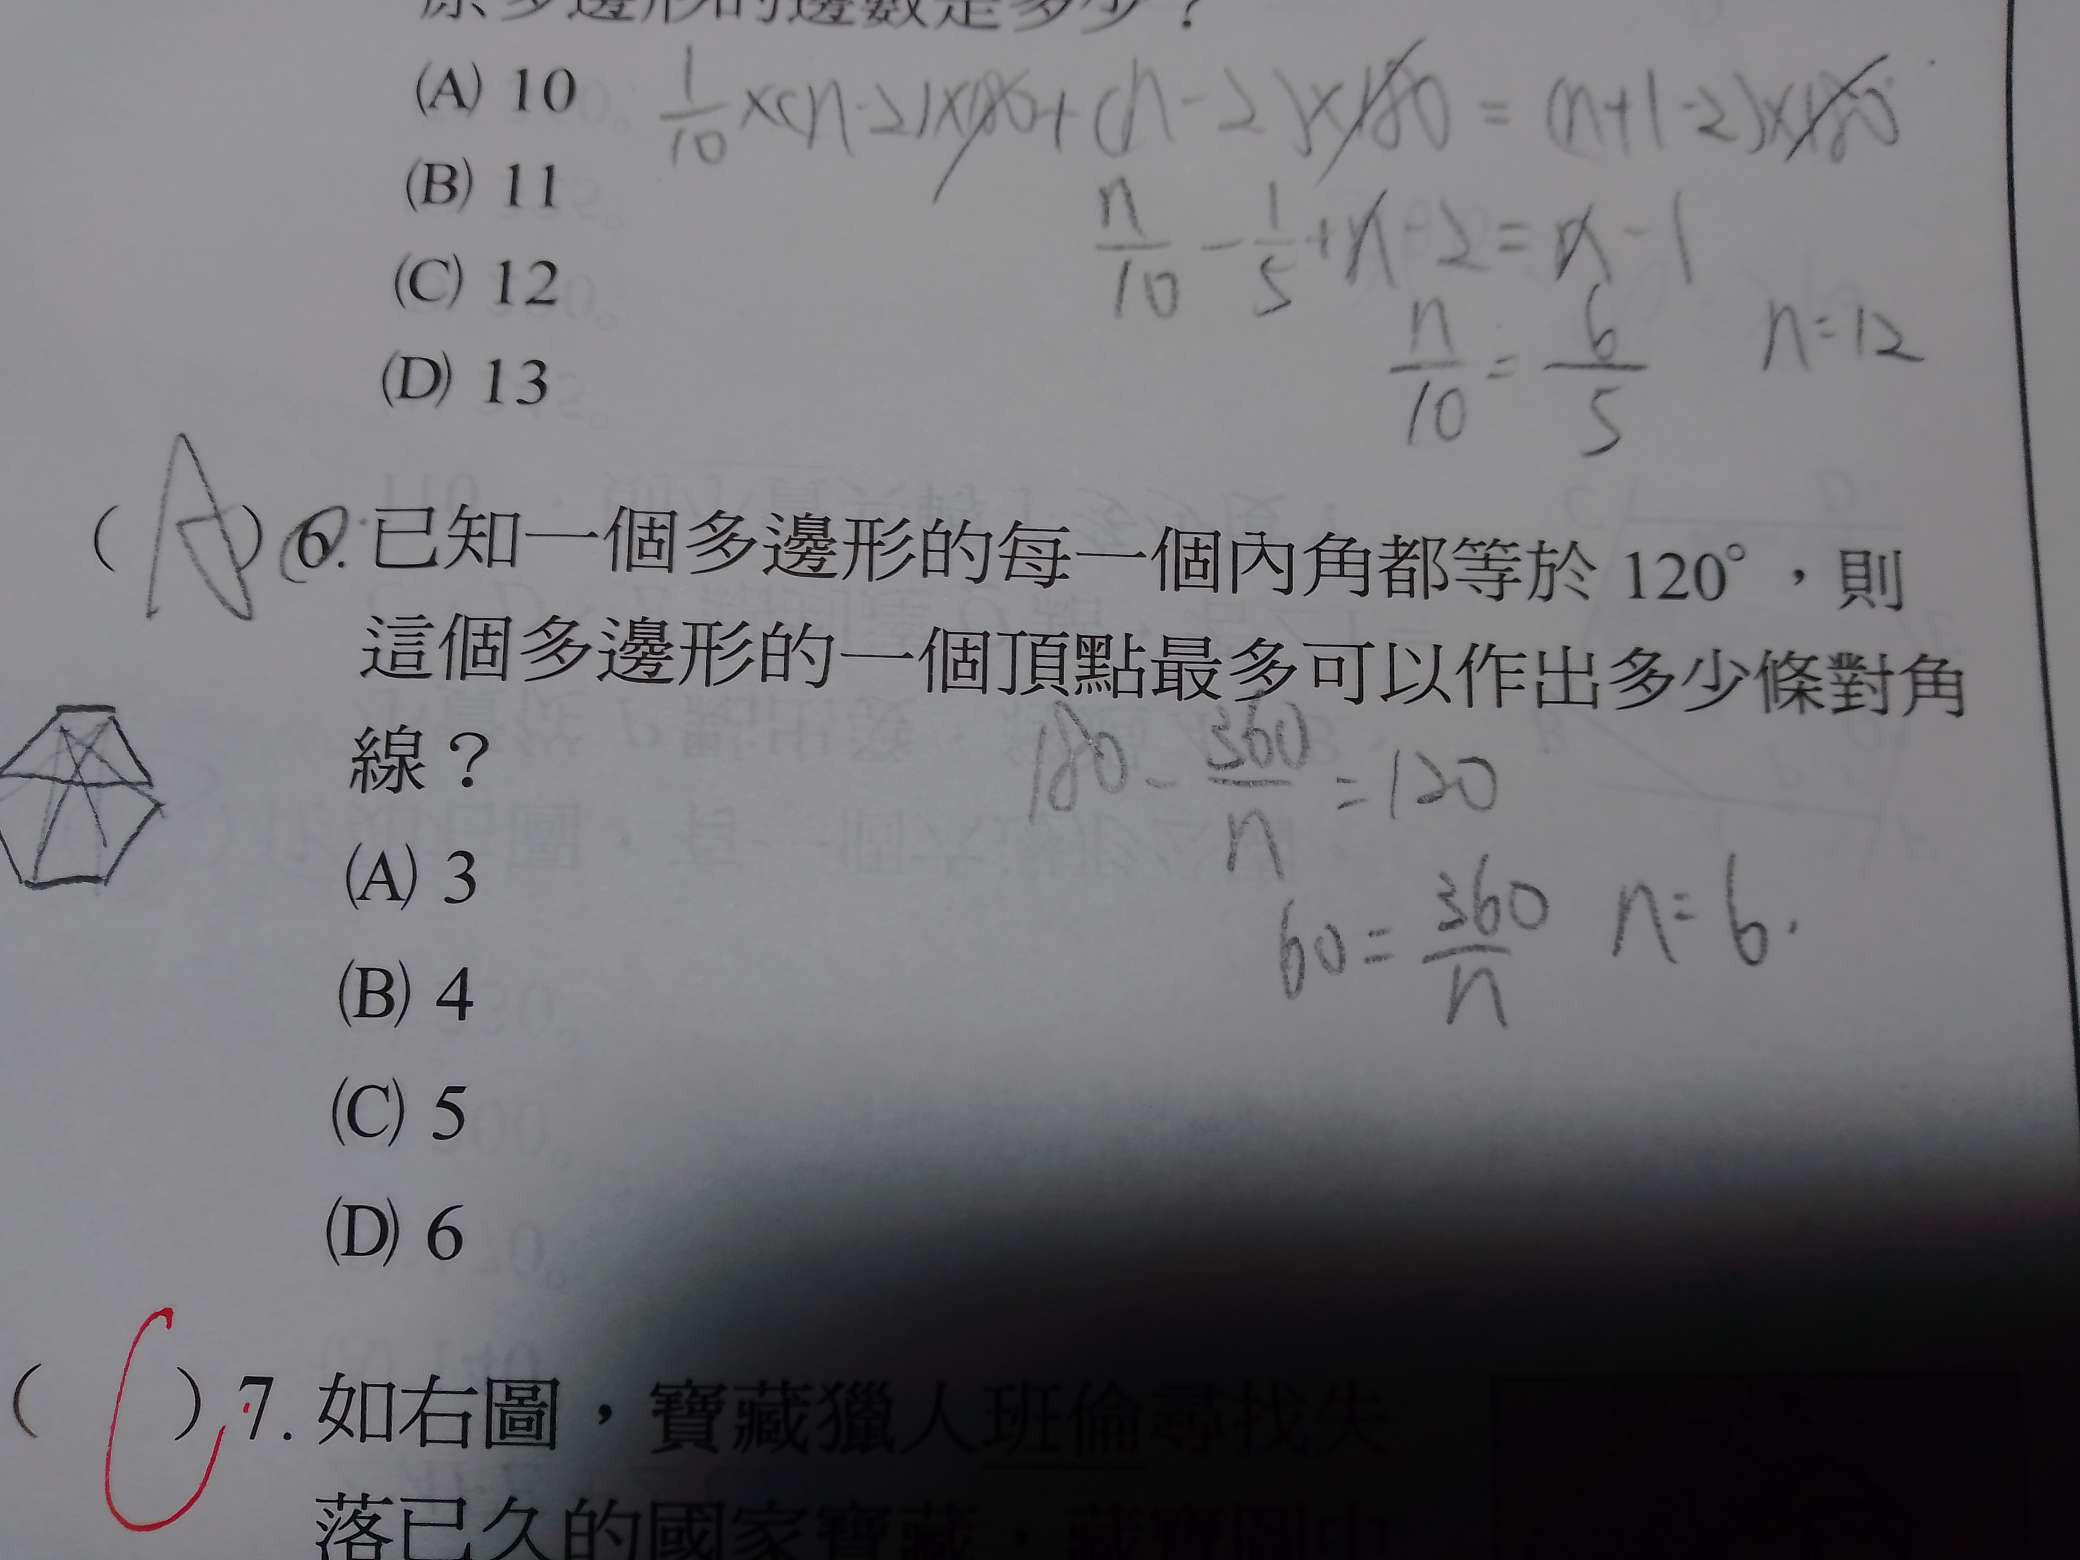 原多邊形的邊數是多少？
(A) 10
1/10 ×(n-2)×180+(n-2)×180=(n+1-2)×180
(B) 11
n/10 - 1/5 +n-2=n-1
(C) 12
n/10 = 6/5 n=12
(D) 13
(A) 6. 已知一個多邊形的每一個內角都等於 120°，則
這個多邊形的一個頂點最多可以作出多少條對角
線？
180 - 360/n = 120
(A) 3
60 = 360/n n=6.
(B) 4
(C) 5
(D) 6
( C ) 7. 如右圖，寶藏獵人班倫尋找失
落已久的國家寶藏，藏寶圖中